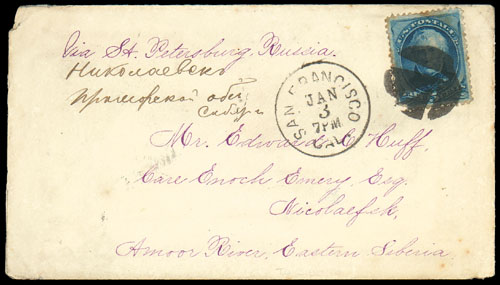 Via St. Petersburg Russia.
Николаевскъ
Приморской обл.
Сибири
U.S. POSTAGE
SAN FRANCISCO
JAN
3
7PM
CAL.
Mr. Edward C. Huff.
Care Enoch Emery, Esq.
Nicolaefsk.
Amoor River, Eastern Siberia